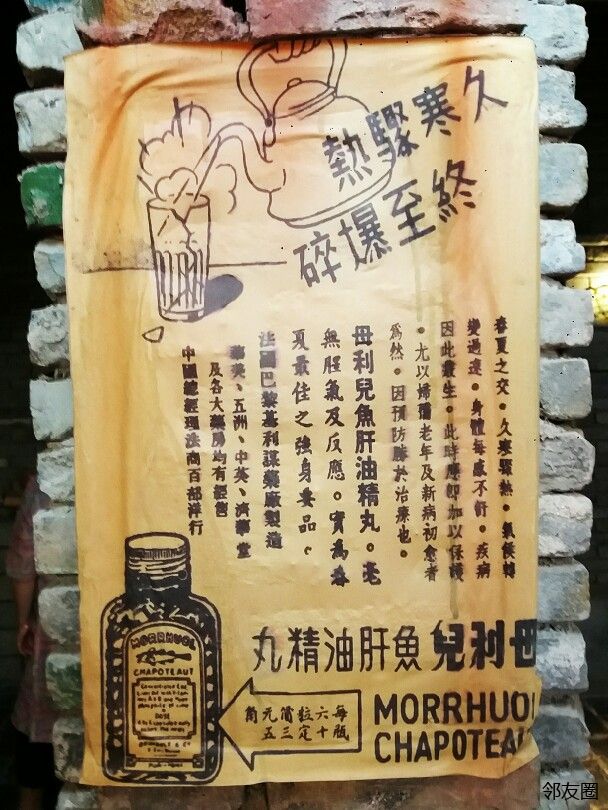 久寒驟熱
終至爆碎
春夏之交。久寒驟熱。氣候轉
變過速。身體每感不舒。疾病
因此叢生。此時應即加以保護
。尤以婦孺老年及新病初愈者
為然。因預防勝於治療也。
毋利兒魚肝油精丸。毫
無腥氣及反應。實為春
夏最佳之強身要品。
法國巴黎基利謀藥廠製造
華英、五洲、中英、濟華堂
及各大藥房均有經售
中國總經理法商百部洋行
毋利兒魚肝油精丸
每瓶六十粒定價三元五角
MORRHUOL
CHAPOTEAU
MORRHUOL
CHAPOTEAUT
DOSE
邻友圈